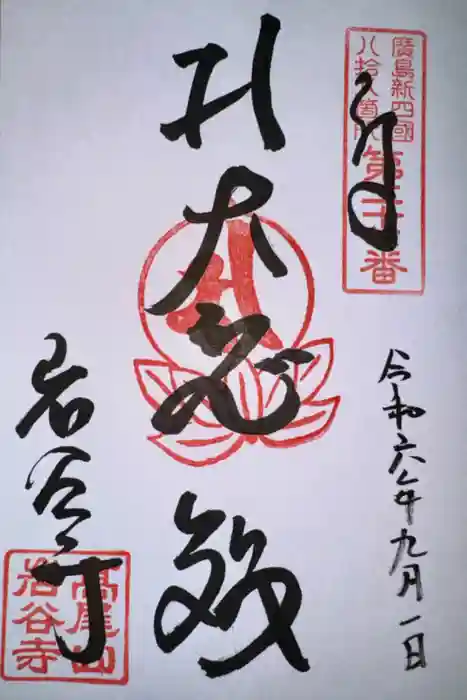 廣島新四國
八拾八箇所
令和六年九月一日
大悲殿
岩谷寺
高尾山
岩谷寺